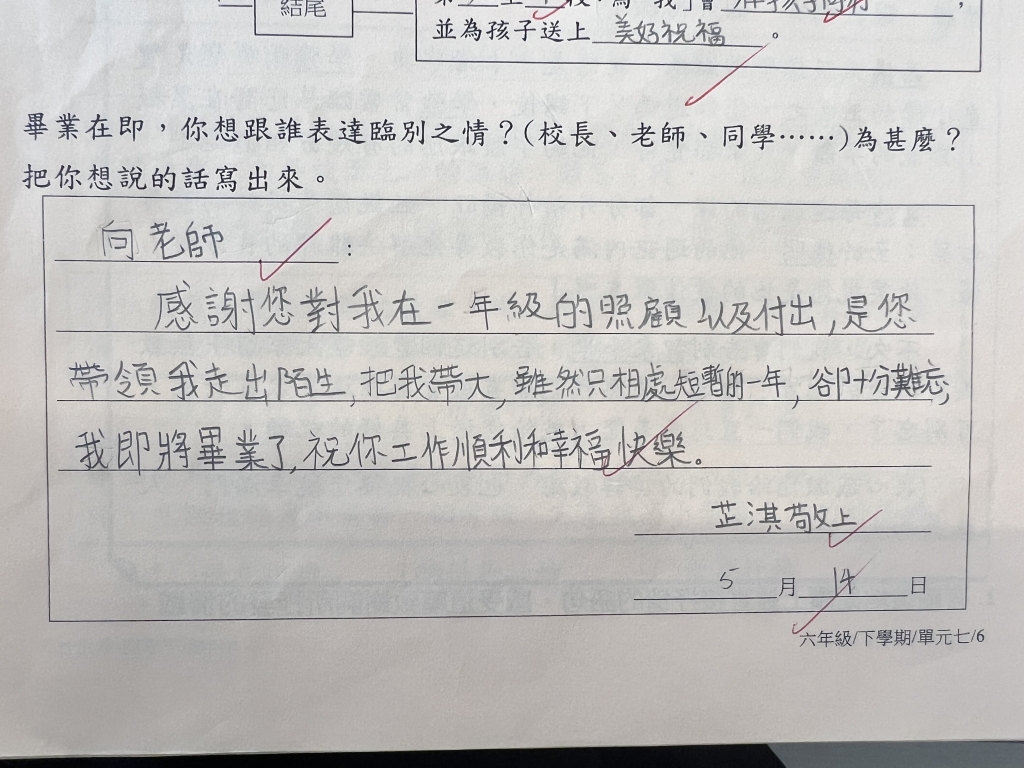 結尾
並為孩子送上 美好祝福 。
畢業在即,你想跟誰表達臨別之情?(校長、老師、同學……)為甚麼?
把你想說的話寫出來。
向老師 :
感謝您對我在一年級的照顧以及付出,是您
帶領我走出陌生,把我帶大,雖然只相處短暫的一年,卻十分難忘,
我即將畢業了,祝你工作順利和幸福快樂。
芷淇敬上
5 月 14 日
六年級/下學期/單元七/6